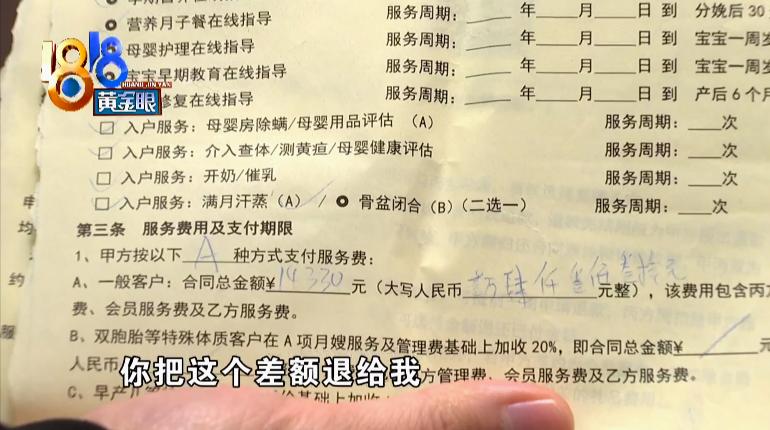 早期营养在线指导
营养月子餐在线指导 服务周期：____年____月____日 到 分娩后30
母婴护理在线指导 服务周期：____年____月____日 到 宝宝一周岁
宝宝早期教育在线指导 服务周期：____年____月____日 到 宝宝一周
修复在线指导 服务周期：____年____月____日 到 产后6个月
1818
HUANG JIN YAN
黄金眼
□ 入户服务：母婴房除螨/母婴用品评估（A） 服务周期：____次
□ 入户服务：介入查体/测黄疸/母婴健康评估 服务周期：____次
□ 入户服务：开奶/催乳 服务周期：____次
□ 入户服务：满月汗蒸（A）/ 骨盆闭合（B）（二选一） 服务周期：____次
第三条 服务费用及支付期限
1、甲方按以下 A 种方式支付服务费：
A、一般客户：合同总金额¥14330元（大写人民币 壹万肆仟叁佰叁拾元 元整），该费用包含丙方
费、会员服务费及乙方服务费。
B、双胞胎等特殊体质客户在A项月嫂服务及管理费基础上加收20%，即合同总金额¥____元
人民币 方管理费、会员服务费及乙方服务费。
C、早产儿 基础上加收
你把这个差额退给我